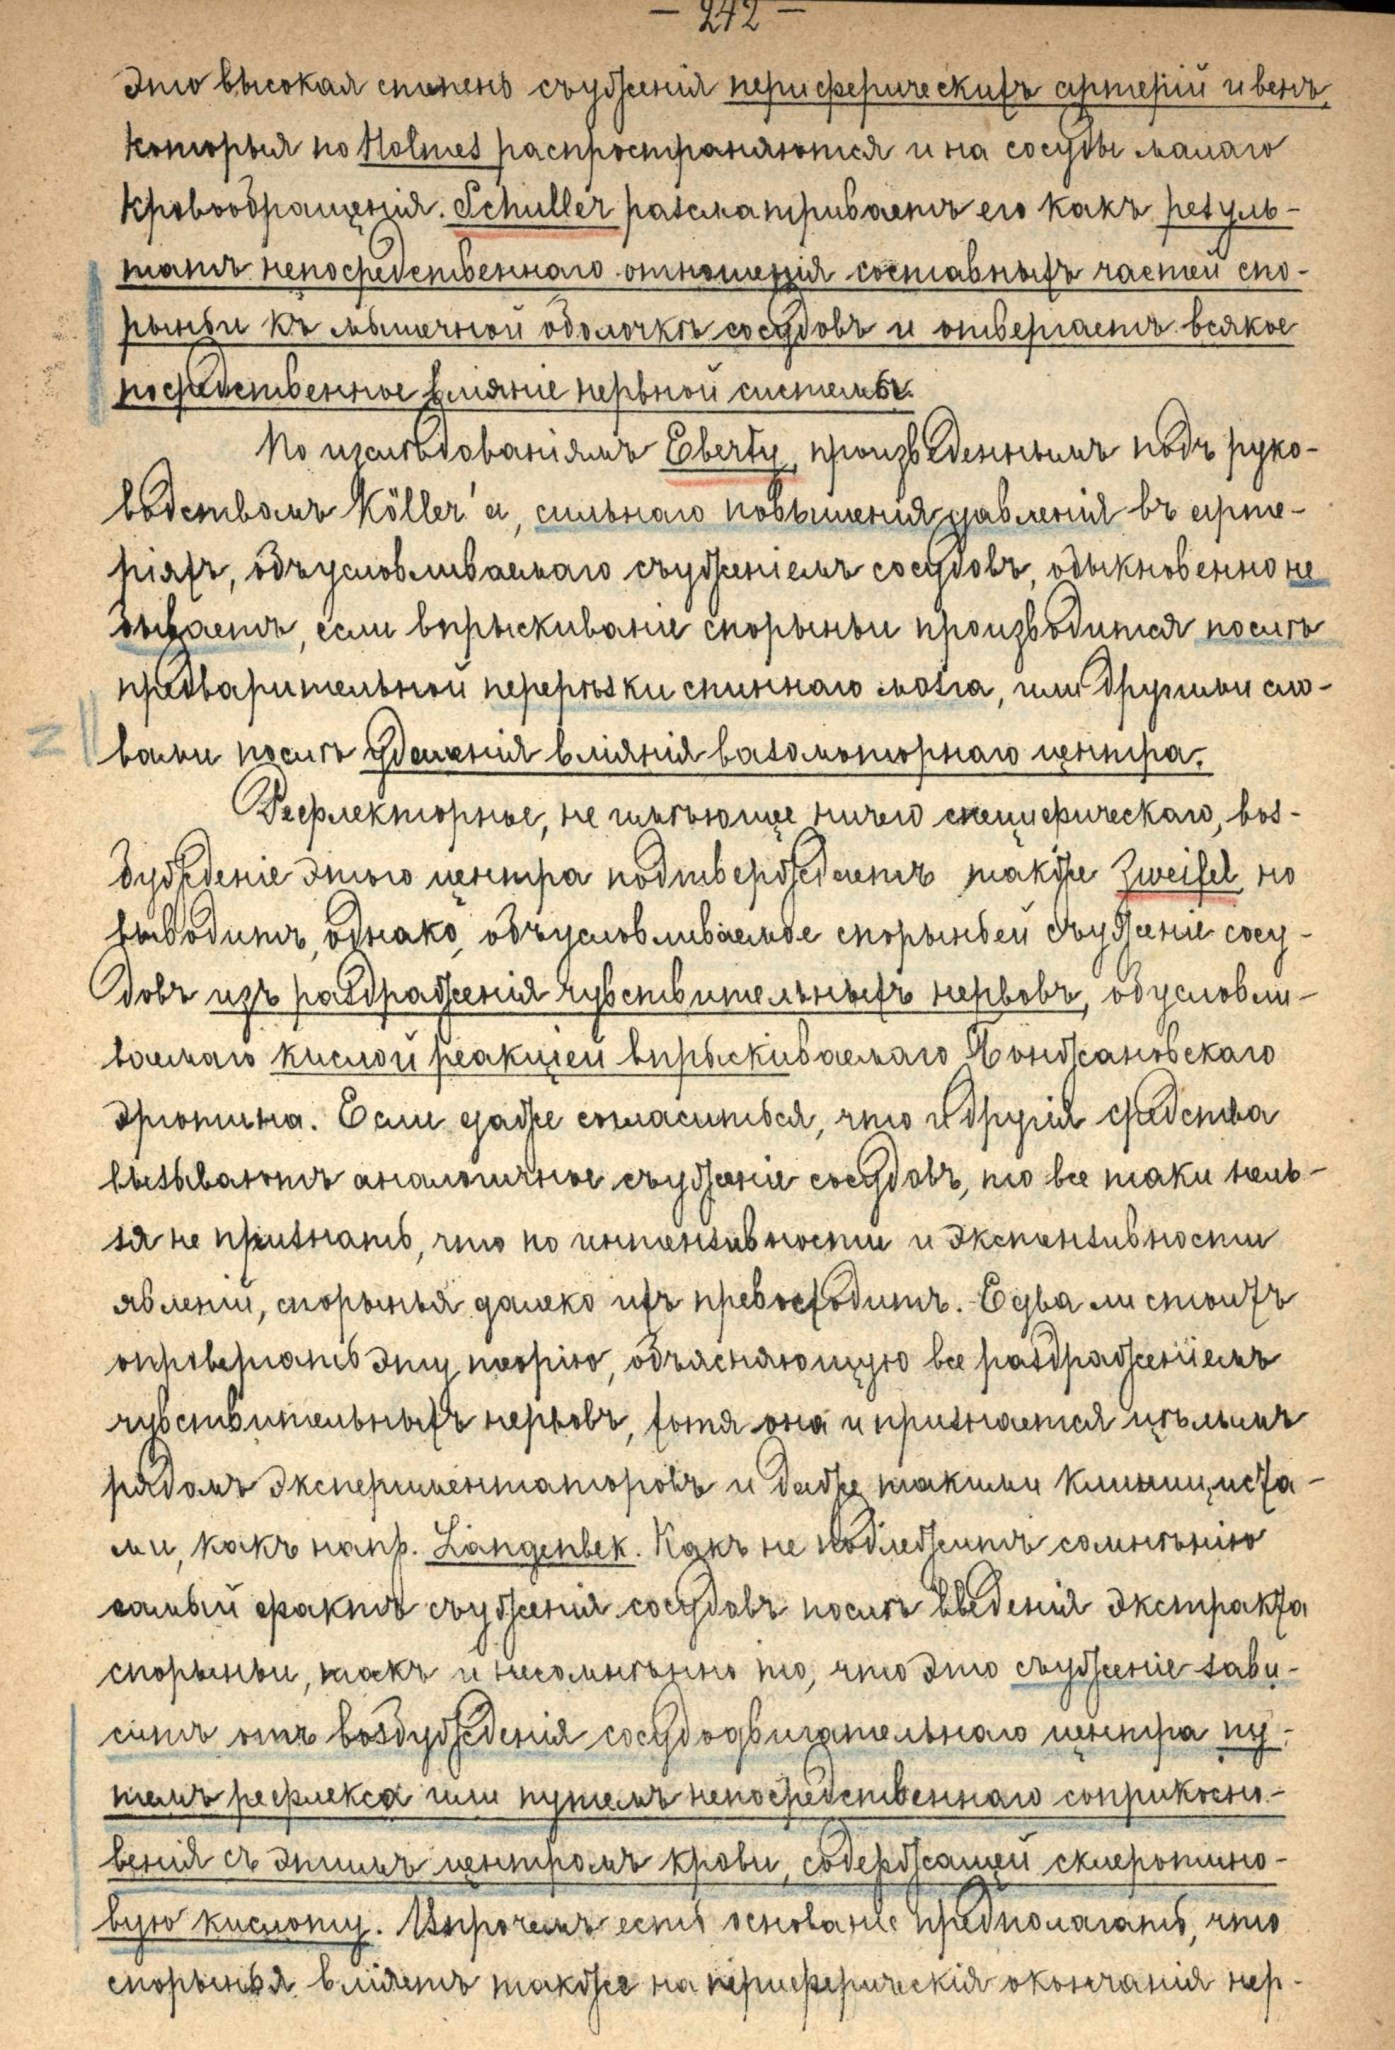 — 242 —
это высокая степень съуженія периферическихъ артерій и венъ,
которыя по Holmes распространяются и на сосуды малаго
кровообращенія. Schuller разсматриваетъ его какъ резуль-
татъ непосредственнаго отношенія составныхъ частей спо-
рыньи къ мышечной оболочкѣ сосудовъ и отвергаетъ всякое
посредственное вліяніе нервной системы.
По изслѣдованіямъ Eberty, произведеннымъ подъ руко-
водствомъ Köller'а, сильнаго повышенія давленія въ арте-
ріяхъ, объусловливаемаго съуженіемъ сосудовъ, обыкновенно не
бываетъ, если впрыскиваніе спорыньи производится послѣ
предварительной перерѣзки спиннаго мозга, или другими сло-
вами послѣ удаленія вліянія вазомоторнаго центра.
Рефлекторное, не имѣющее ничего специфическаго, воз-
бужденіе этого центра подтверждаетъ также Zweifel, но
выводитъ, однако, объусловливаемое спорыньей съуженіе сосу-
довъ изъ раздраженія чувствительныхъ нервовъ, обусловли-
ваемаго кислой реакціей впрыскиваемаго Бонжановскаго
эрготина. Если даже согласиться, что и другія средства
вызываютъ аналогичное съуженіе сосудовъ, то все таки нель-
зя не признать, что по интензивности и экстензивности
явленій, спорынья далеко ихъ превосходитъ. Едва ли стоитъ
опровергать эту теорію, объясняющую все раздраженіемъ
чувствительныхъ нервовъ, хотя она и признается цѣлымъ
рядомъ экспериментаторовъ и даже такими клиницista-
ми, какъ напр. Langenbek. Какъ не подлежитъ сомнѣнію
самый фактъ съуженія сосудовъ послѣ введенія экстракта
спорыньи, такъ и несомнѣнно то, что это съуженіе зави-
ситъ отъ возбужденія сосудодвигательнаго центра пу-
темъ рефлекса или путемъ непосредственнаго соприкосно-
венія съ этимъ центромъ крови, содержащей склеротино-
вую кислоту. Впрочемъ есть основаніе предполагать, что
спорынья вліяетъ также на периферическія окончанія нер-